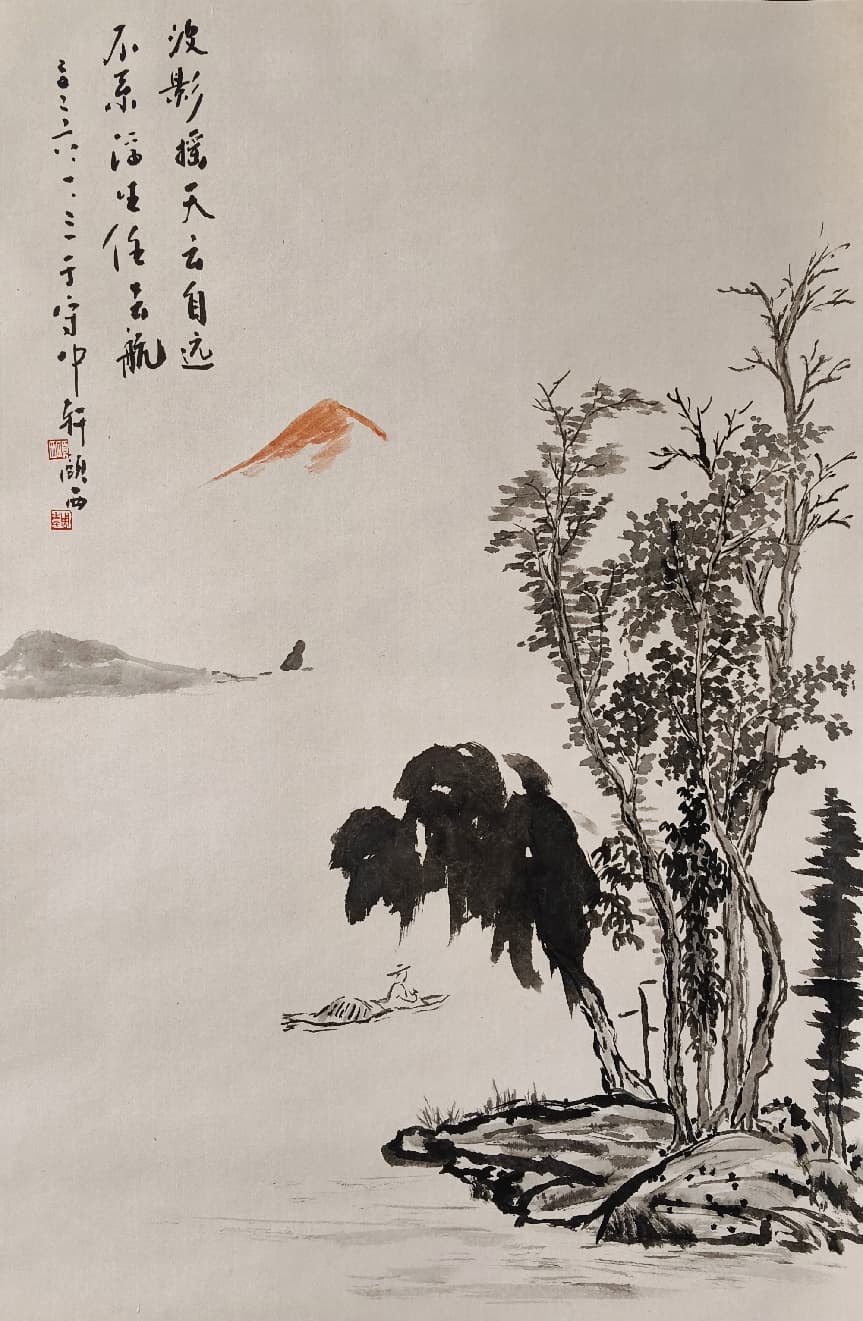 波影摇天云自远
不系浮生任去航
二〇二六、一、三于守中轩颐西